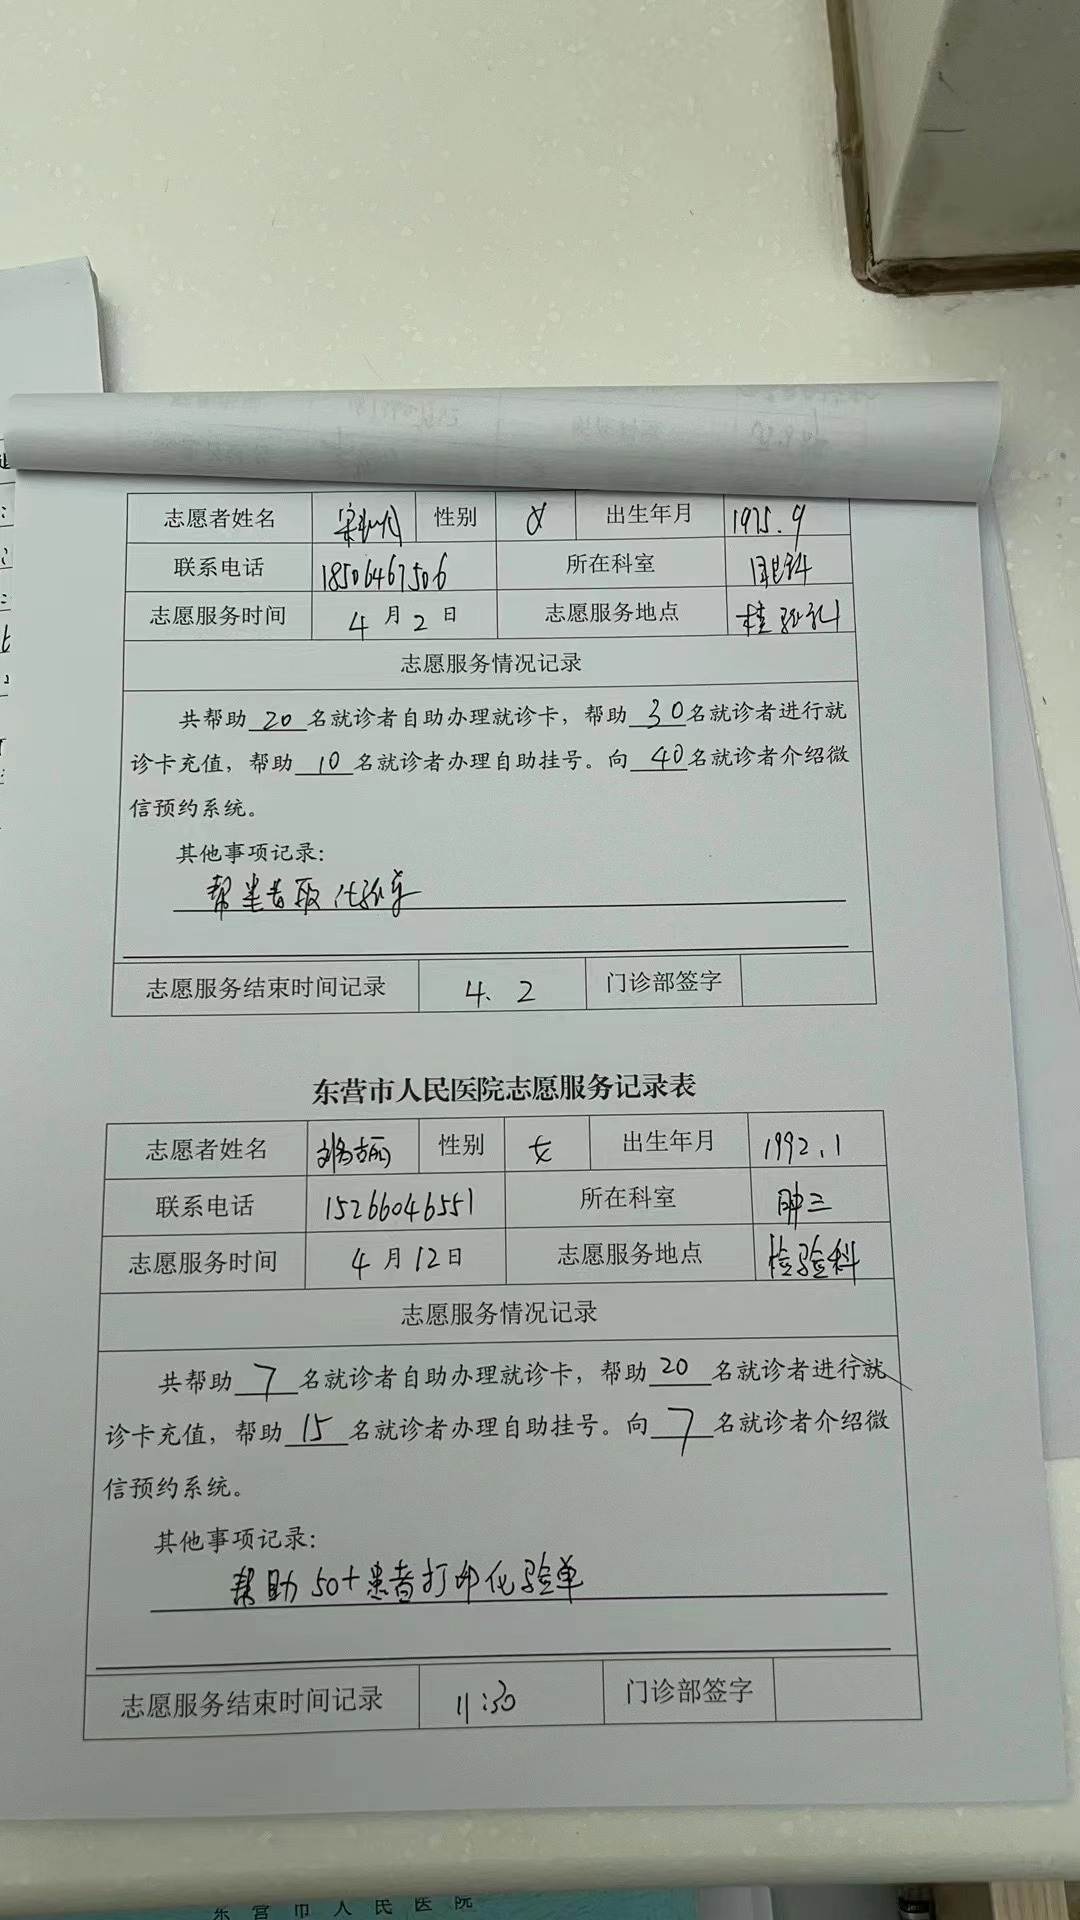 志愿者姓名 性别 女 出生年月 1975.9
联系电话 18506467506 所在科室
志愿服务时间 4月2日 志愿服务地点 检验科
志愿服务情况记录
共帮助20名就诊者自助办理就诊卡，帮助30名就诊者进行就
诊卡充值，帮助10名就诊者办理自助挂号。向40名就诊者介绍微
信预约系统。
其他事项记录：
帮患者取化验单
志愿服务结束时间记录 4.2 门诊部签字
东营市人民医院志愿服务记录表
志愿者姓名 性别 女 出生年月 1992.1
联系电话 15266046551 所在科室 肿三
志愿服务时间 4月12日 志愿服务地点 检验科
志愿服务情况记录
共帮助7名就诊者自助办理就诊卡，帮助20名就诊者进行就
诊卡充值，帮助15名就诊者办理自助挂号。向7名就诊者介绍微
信预约系统。
其他事项记录：
帮助50+患者打印化验单
志愿服务结束时间记录 11:30 门诊部签字
东营市人民医院